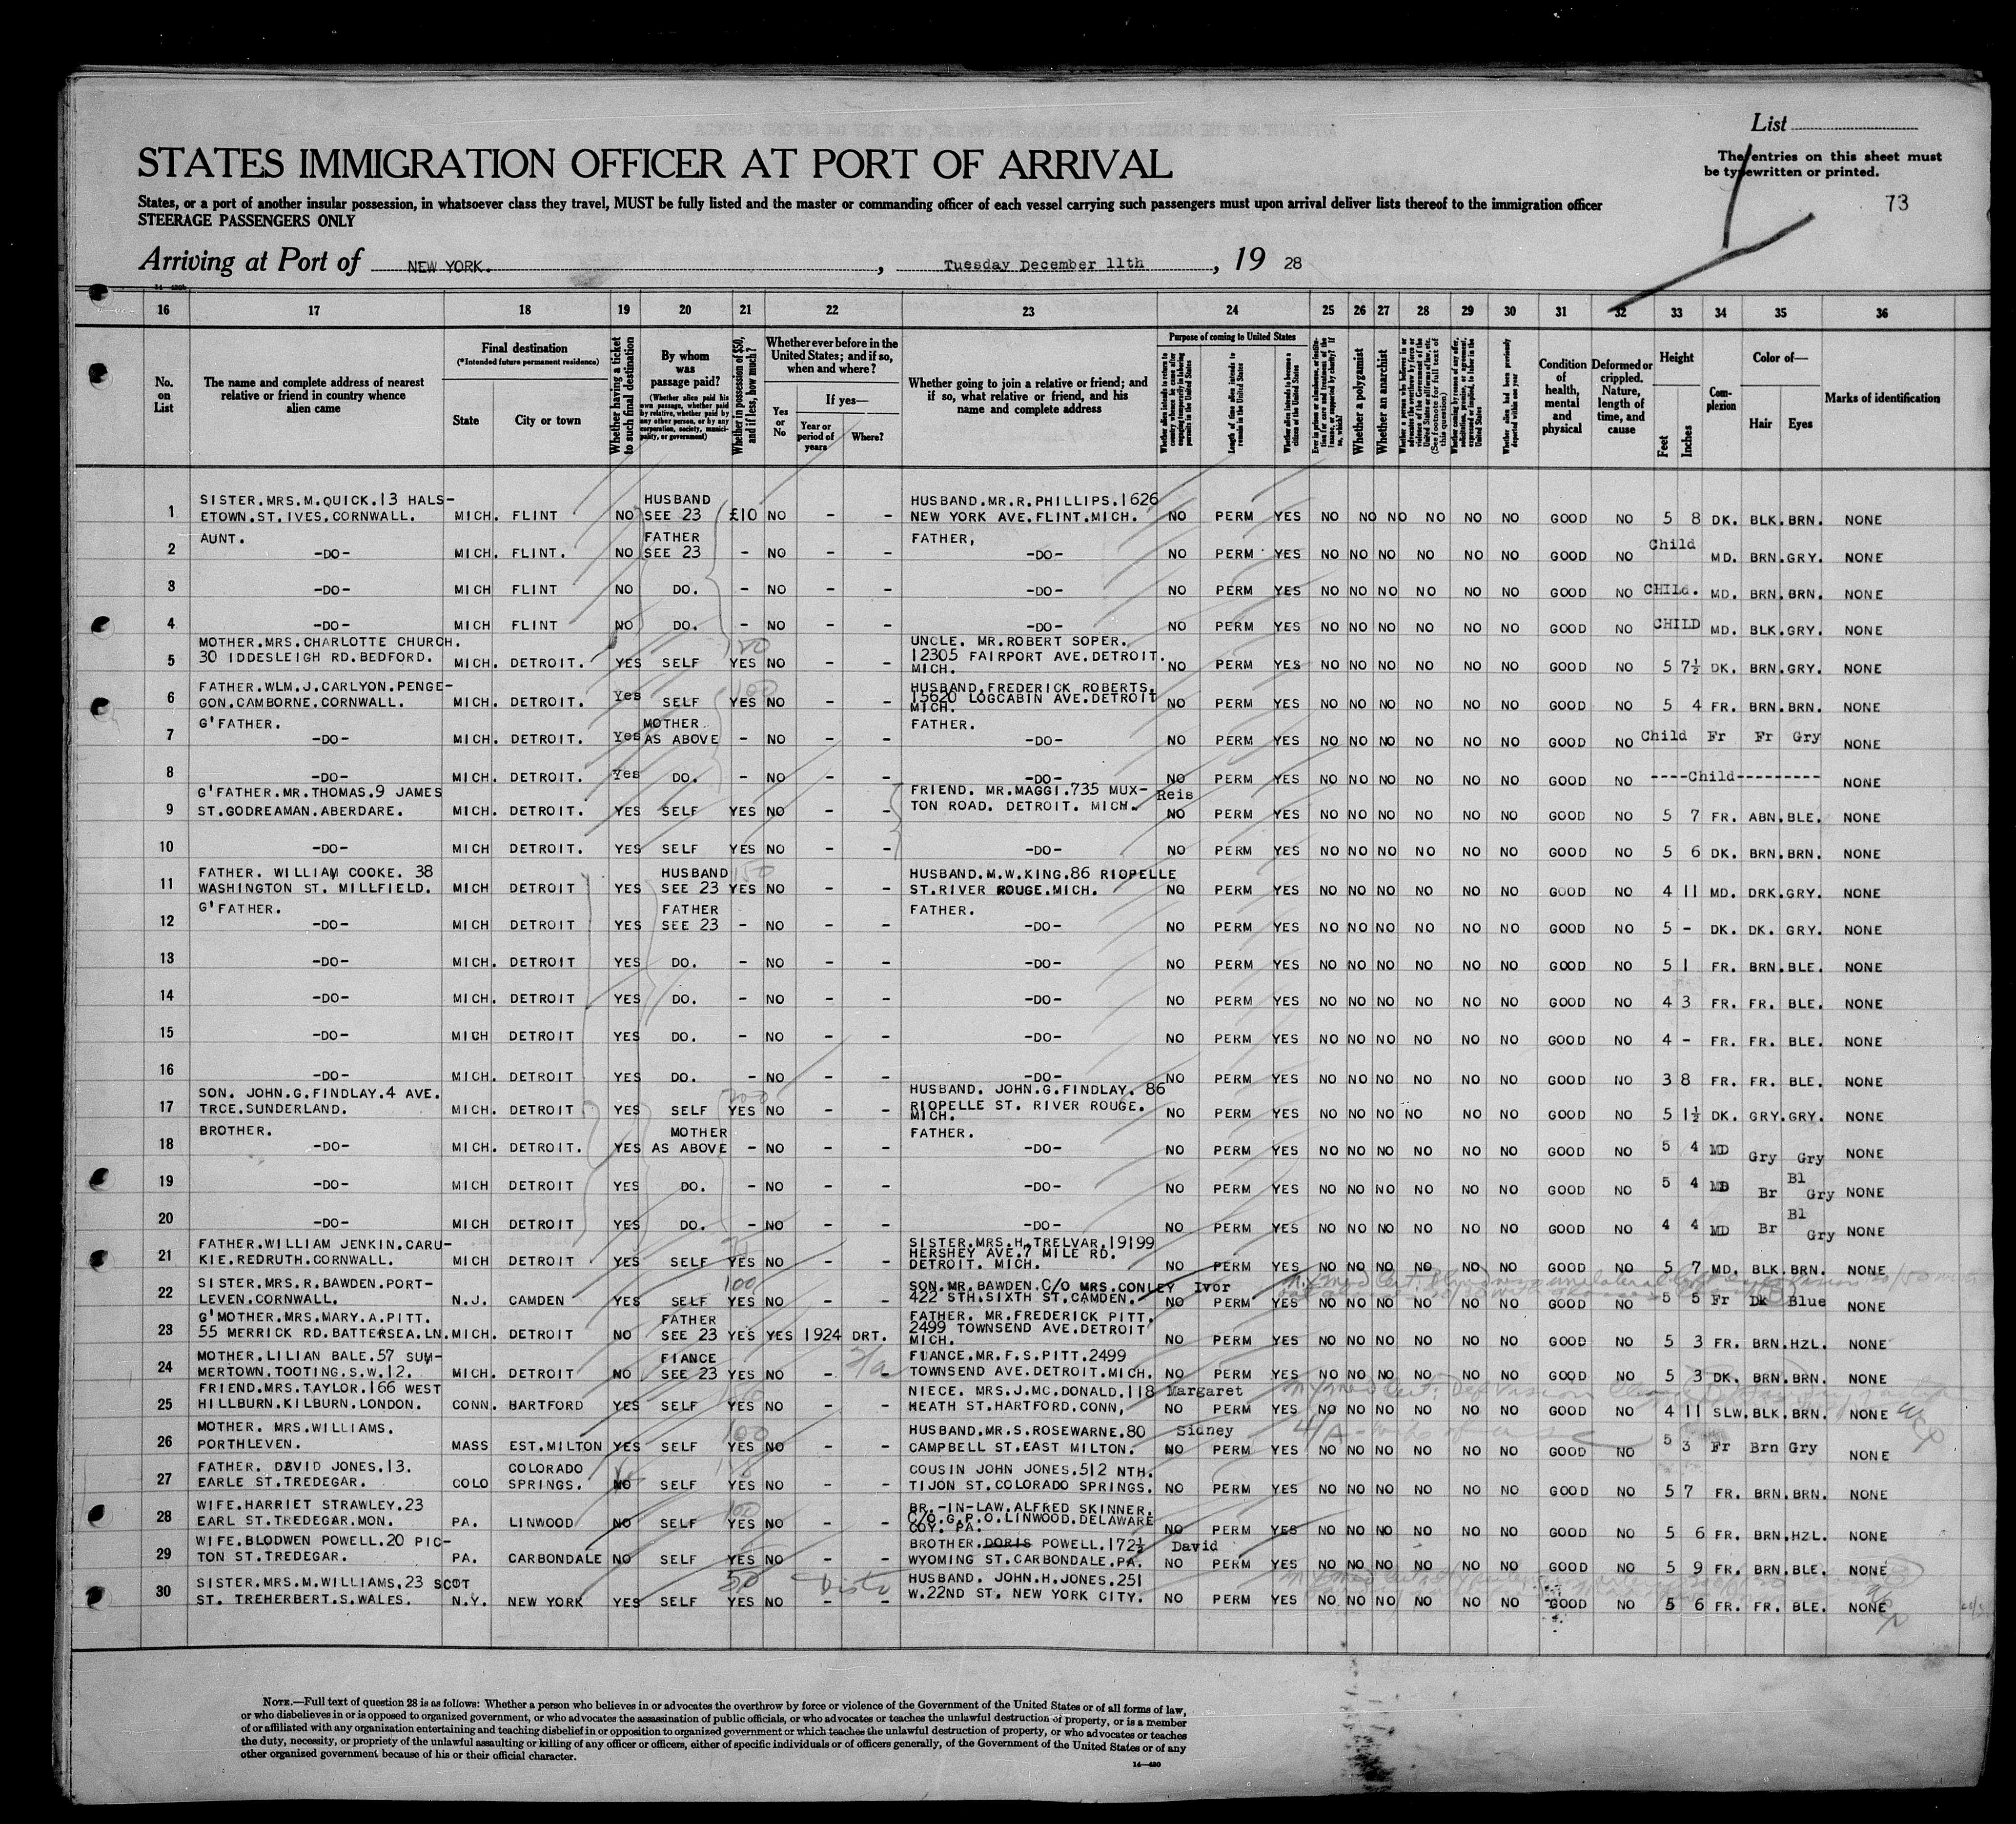 List
The entries on this sheet must
be typewritten or printed.
73
STATES IMMIGRATION OFFICER AT PORT OF ARRIVAL
States, or a port of another insular possession, in whatsoever class they travel, MUST be fully listed and the master or commanding officer of each vessel carrying such passengers must upon arrival deliver lists thereof to the immigration officer
STEERAGE PASSENGERS ONLY
Arriving at Port of NEW YORK. , Tuesday December 11th , 19 28
16 17 18 19 20 21 22 23 24 25 26 27 28 29 30 31 32 33 34 35 36
No. on List
The name and complete address of nearest relative or friend in country whence alien came
Final destination
(*Intended future permanent residence)
State
City or town
Whether having a ticket to such final destination
By whom was passage paid?
(Whether alien paid his own passage, whether paid by relative, whether paid by any other person, or by any corporation, society, municipality, or government)
Whether in possession of $50, and if less, how much?
Whether ever before in the United States; and if so, when and where?
Yes or No
If yes—
Year or period of years
Where?
Whether going to join a relative or friend; and if so, what relative or friend, and his name and complete address
Purpose of coming to United States
Length of time alien intends to remain in the United States
Whether alien intends to become a citizen of the United States
Whether a polygamist
Whether an anarchist
Condition of health, mental and physical
Deformed or crippled. Nature, length of time, and cause
Height
Feet
Inches
Complexion
Color of—
Hair
Eyes
Marks of identification
1 SISTER.MRS.M.QUICK.13 HALS-
ETOWN.ST.IVES.CORNWALL. MICH. FLINT NO HUSBAND SEE 23 £10 NO - - HUSBAND.MR.R.PHILLIPS.1626
NEW YORK AVE.FLINT.MICH. NO PERM YES NO NO NO NO NO NO GOOD NO 5 8 DK. BLK. BRN. NONE
2 AUNT.
-DO- MICH. FLINT. NO FATHER SEE 23 - NO - - FATHER,
-DO- NO PERM YES NO NO NO NO NO NO GOOD NO Child MD. BRN. GRY. NONE
3 -DO- MICH FLINT NO DO. - NO - - -DO- NO PERM YES NO NO NO NO NO NO GOOD NO CHILd. MD. BRN. BRN. NONE
4 -DO- MICH FLINT NO DO. - NO - - -DO- NO PERM YES NO NO NO NO NO NO GOOD NO CHILD MD. BLK. GRY. NONE
5 MOTHER.MRS.CHARLOTTE CHURCH.
30 IDDESLEIGH RD.BEDFORD. MICH. DETROIT. YES SELF YES NO - - UNCLE. MR.ROBERT SOPER.
12305 FAIRPORT AVE.DETROIT.
MICH. NO PERM YES NO NO NO NO NO NO GOOD NO 5 7½ DK. BRN. GRY. NONE
6 FATHER.WLM.J.CARLYON.PENGE-
GON.CAMBORNE.CORNWALL. MICH. DETROIT. Yes SELF 100 YES NO - - HUSBAND.FREDERICK ROBERTS.
15620 LOGCABIN AVE.DETROIT
MICH. NO PERM YES NO NO NO NO NO NO GOOD NO 5 4 FR. BRN. BRN. NONE
7 G'FATHER.
-DO- MICH. DETROIT. Yes MOTHER AS ABOVE - NO - - FATHER.
-DO- NO PERM YES NO NO NO NO NO NO GOOD NO Child Fr Fr Gry NONE
8 -DO- MICH. DETROIT. Yes DO. - NO - - -DO- NO PERM YES NO NO NO NO NO NO GOOD NO ----Child--------- NONE
9 G'FATHER.MR.THOMAS.9 JAMES
ST.GODREAMAN.ABERDARE. MICH. DETROIT. YES SELF YES NO - - FRIEND. MR.MAGGI.735 MUX- Reis
TON ROAD. DETROIT. MICH. NO PERM YES NO NO NO NO NO NO GOOD NO 5 7 FR. ABN. BLE. NONE
10 -DO- MICH DETROIT. YES SELF YES NO - - -DO- NO PERM YES NO NO NO NO NO NO GOOD NO 5 6 DK. BRN. BRN. NONE
11 FATHER. WILLIAM COOKE. 38
WASHINGTON ST. MILLFIELD. MICH DETROIT YES HUSBAND SEE 23 150 YES NO - - HUSBAND.M.W.KING.86 RIOPELLE
ST.RIVER ROUGE.MICH. NO PERM YES NO NO NO NO NO NO GOOD NO 4 11 MD. DRK. GRY. NONE
12 G'FATHER.
-DO- MICH DETROIT YES FATHER SEE 23 - NO - - FATHER.
-DO- NO PERM YES NO NO NO NO NO NO GOOD NO 5 - DK. DK. GRY. NONE
13 -DO- MICH. DETROIT YES DO. - NO - - -DO- NO PERM YES NO NO NO NO NO NO GOOD NO 5 1 FR. BRN. BLE. NONE
14 -DO- MICH. DETROIT YES DO. - NO - - -DO- NO PERM YES NO NO NO NO NO NO GOOD NO 4 3 FR. FR. BLE. NONE
15 -DO- MICH DETROIT YES DO. - NO - - -DO- NO PERM YES NO NO NO NO NO NO GOOD NO 4 - FR. FR. BLE. NONE
16 -DO- MICH. DETROIT YES DO. - NO - - -DO- NO PERM YES NO NO NO NO NO NO GOOD NO 3 8 FR. FR. BLE. NONE
17 SON. JOHN.G.FINDLAY.4 AVE.
TRCE.SUNDERLAND. MICH. DETROIT YES SELF YES NO - - HUSBAND. JOHN.G.FINDLAY. 86
RIOPELLE ST. RIVER ROUGE.
MICH. NO PERM YES NO NO NO NO NO NO GOOD NO 5 1½ DK. GRY. GRY. NONE
18 BROTHER.
-DO- MICH. DETROIT. YES MOTHER AS ABOVE - NO - - FATHER.
-DO- NO PERM YES NO NO NO NO NO NO GOOD NO 5 4 MD Gry Gry NONE
19 -DO- MICH DETROIT YES DO. - NO - - -DO- NO PERM YES NO NO NO NO NO NO GOOD NO 5 4 MD Br Bl Gry NONE
20 -DO- MICH DETROIT YES DO. - NO - - -DO- NO PERM YES NO NO NO NO NO NO GOOD NO 4 4 MD Br Bl Gry NONE
21 FATHER.WILLIAM JENKIN.CARU-
KIE.REDRUTH.CORNWALL. MICH DETROIT YES SELF YES NO - - SISTER.MRS.H.TRELVAR.19199
HERSHEY AVE.7 MILE RD.
DETROIT. MICH. NO PERM YES NO NO NO NO NO NO GOOD NO 5 7 MD. BLK. BRN. NONE
22 SISTER.MRS.R.BAWDEN.PORT-
LEVEN.CORNWALL. N.J. CAMDEN YES SELF 100 YES NO - - SON.MR.BAWDEN.C/O MRS.CONLEY Ivor
422 STH.SIXTH ST.CAMDEN. NO PERM YES NO NO NO NO NO NO GOOD NO 5 5 Fr Dk Blue NONE
23 G'MOTHER.MRS.MARY.A.PITT.
55 MERRICK RD.BATTERSEA.LN. MICH. DETROIT NO FATHER SEE 23 YES YES 1924 DRT. FATHER. MR.FREDERICK PITT.
2499 TOWNSEND AVE.DETROIT
MICH. NO PERM YES NO NO NO NO NO NO GOOD NO 5 3 FR. BRN. HZL. NONE
24 MOTHER.LILIAN BALE.57 SUM-
MERTOWN.TOOTING.S.W.12. MICH. DETROIT NO FIANCE SEE 23 YES NO - FIANCE.MR.F.S.PITT.2499
TOWNSEND AVE.DETROIT.MICH. NO PERM YES NO NO NO NO NO NO GOOD NO 5 3 DK. BRN. BRN. NONE
25 FRIEND.MRS.TAYLOR.166 WEST
HILLBURN.KILBURN.LONDON. CONN. HARTFORD YES SELF YES NO - - NIECE. MRS.J.MC.DONALD.118 Margaret
HEATH ST.HARTFORD.CONN, NO PERM YES NO NO NO NO NO NO GOOD NO 4 11 SLW. BLK. BRN. NONE
26 MOTHER. MRS.WILLIAMS.
PORTHLEVEN. MASS EST.MILTON YES SELF 100 YES NO - - HUSBAND.MR.S.ROSEWARNE.80 Sidney
CAMPBELL ST.EAST MILTON. NO PERM YES NO NO NO NO NO NO GOOD NO 5 3 Fr Brn Gry NONE
27 FATHER. DAVID JONES.13.
EARLE ST.TREDEGAR. COLO COLORADO SPRINGS. NO SELF YES NO - - COUSIN JOHN JONES.512 NTH.
TIJON ST.COLORADO SPRINGS. NO PERM YES NO NO NO NO NO NO GOOD NO 5 7 FR. BRN. BRN. NONE
28 WIFE.HARRIET STRAWLEY.23
EARL ST.TREDEGAR.MON. PA. LINWOOD NO SELF 100 YES NO - - BR.-IN-LAW.ALFRED SKINNER.
C/O.G.P.O.LINWOOD.DELAWARE
COY. PA. NO PERM YES NO NO NO NO NO NO GOOD NO 5 6 FR. BRN. HZL. NONE
29 WIFE.BLODWEN POWELL.20 PIC-
TON ST.TREDEGAR. PA. CARBONDALE NO SELF YES NO - - BROTHER.DORIS POWELL.172½ David
WYOMING ST.CARBONDALE.PA. NO PERM YES NO NO NO NO NO NO GOOD NO 5 9 FR. BRN. BLE. NONE
30 SISTER.MRS.M.WILLIAMS.23 SCOT
ST. TREHERBERT.S.WALES. N.Y. NEW YORK YES SELF 50 YES NO - - HUSBAND. JOHN.H.JONES.251
W.22ND ST. NEW YORK CITY. NO PERM YES NO NO NO NO NO NO GOOD NO 5 6 FR. FR. BLE. NONE
NOTE.—Full text of question 28 is as follows: Whether a person who believes in or advocates the overthrow by force or violence of the Government of the United States or of all forms of law,
or who disbelieves in or is opposed to organized government, or who advocates the assassination of public officials, or who advocates or teaches the unlawful destruction of property, or is a member
of or affiliated with any organization entertaining and teaching disbelief in or opposition to organized government or which teaches the unlawful destruction of property, or who advocates or teaches
the duty, necessity, or propriety of the unlawful assaulting or killing of any officer or officers, either of specific individuals or of officers generally, of the Government of the United States or of any
other organized government because of his or their official character.
14—480